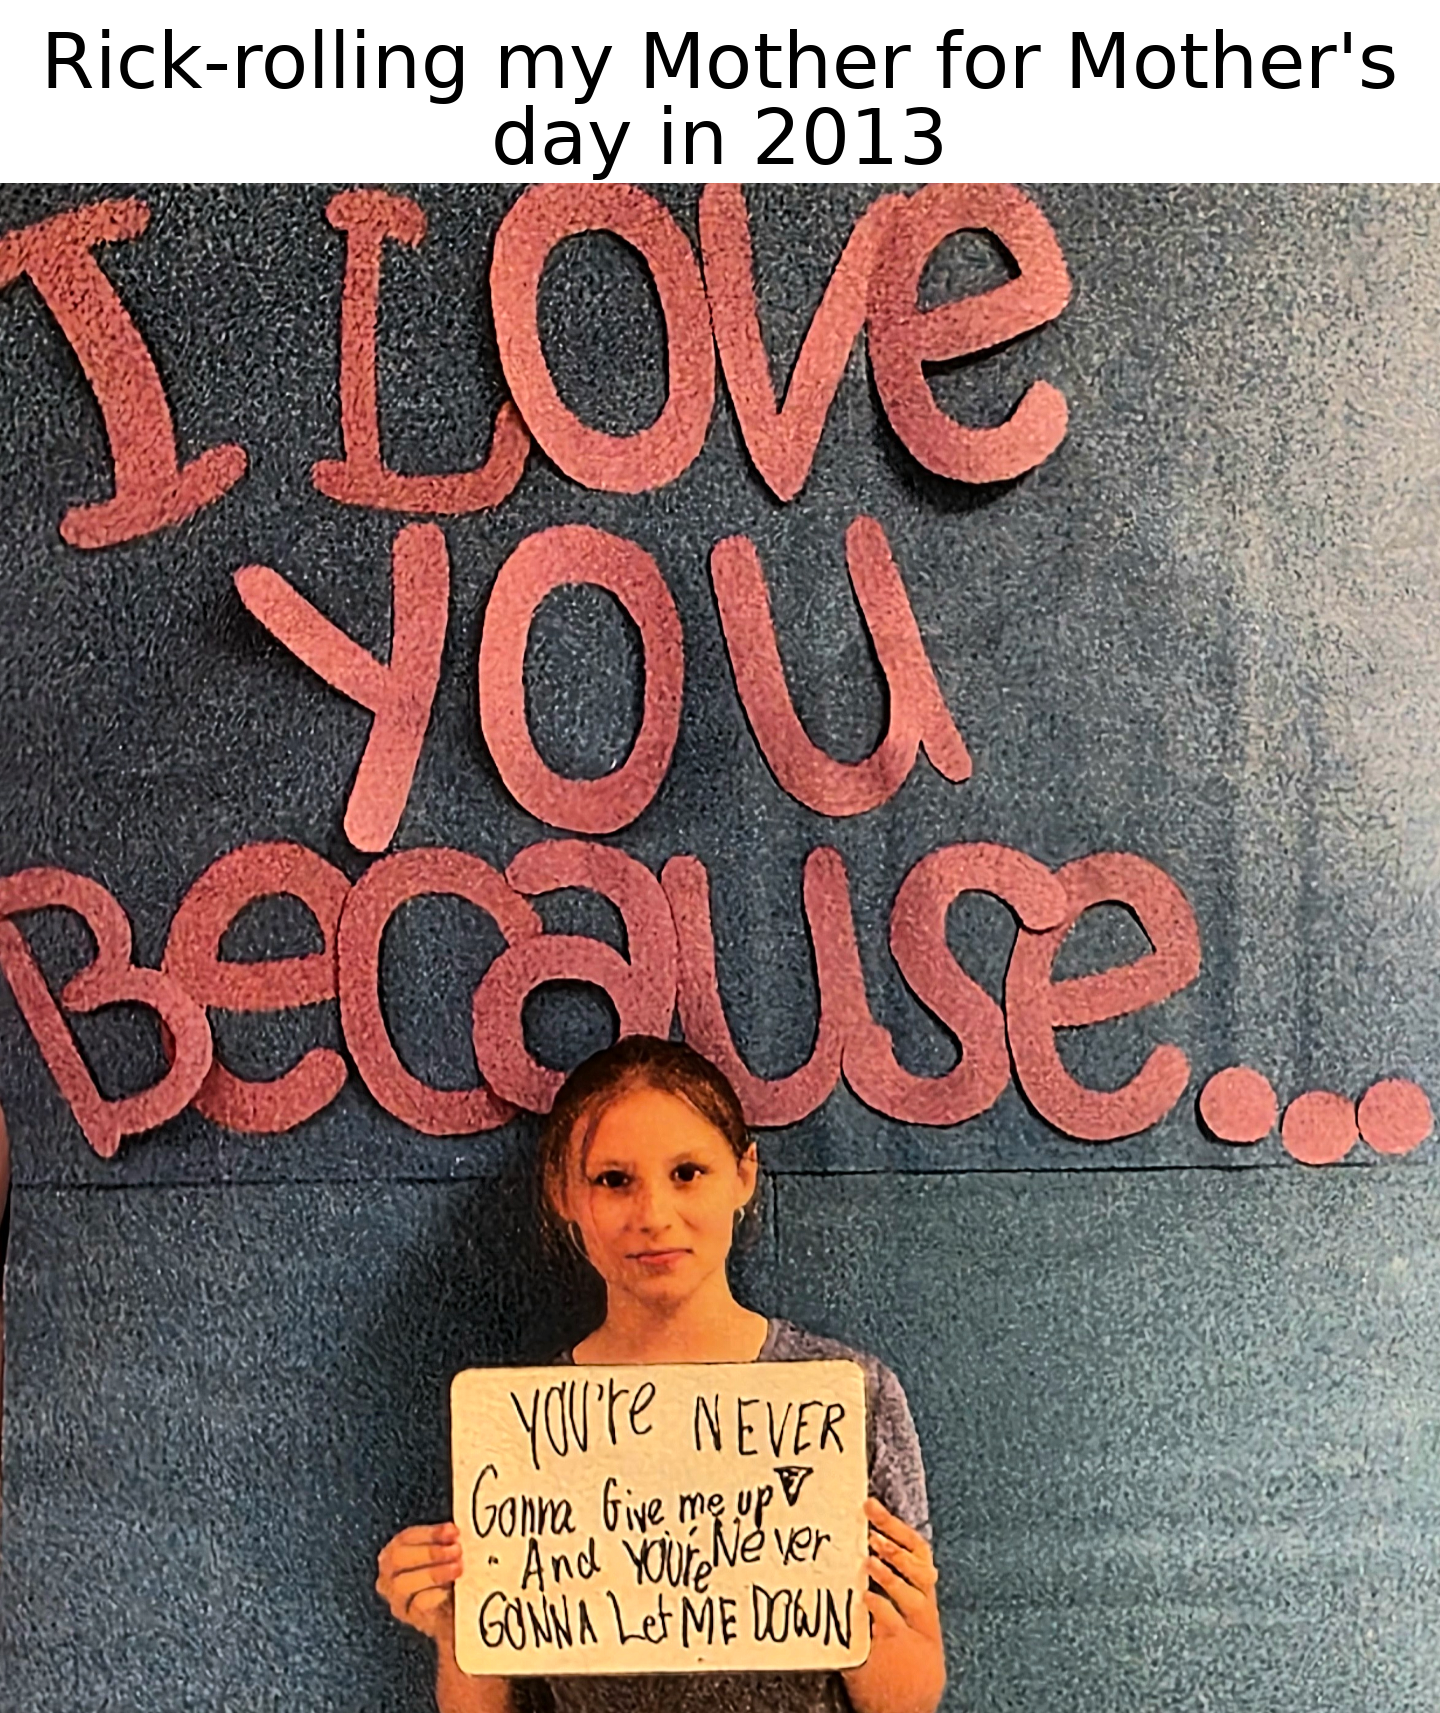 Rick-rolling my Mother for Mother's
day in 2013
I Love
you
Because...
you're NEVER
Gonna Give me up
And you're Never
GONNA Let ME DOWN